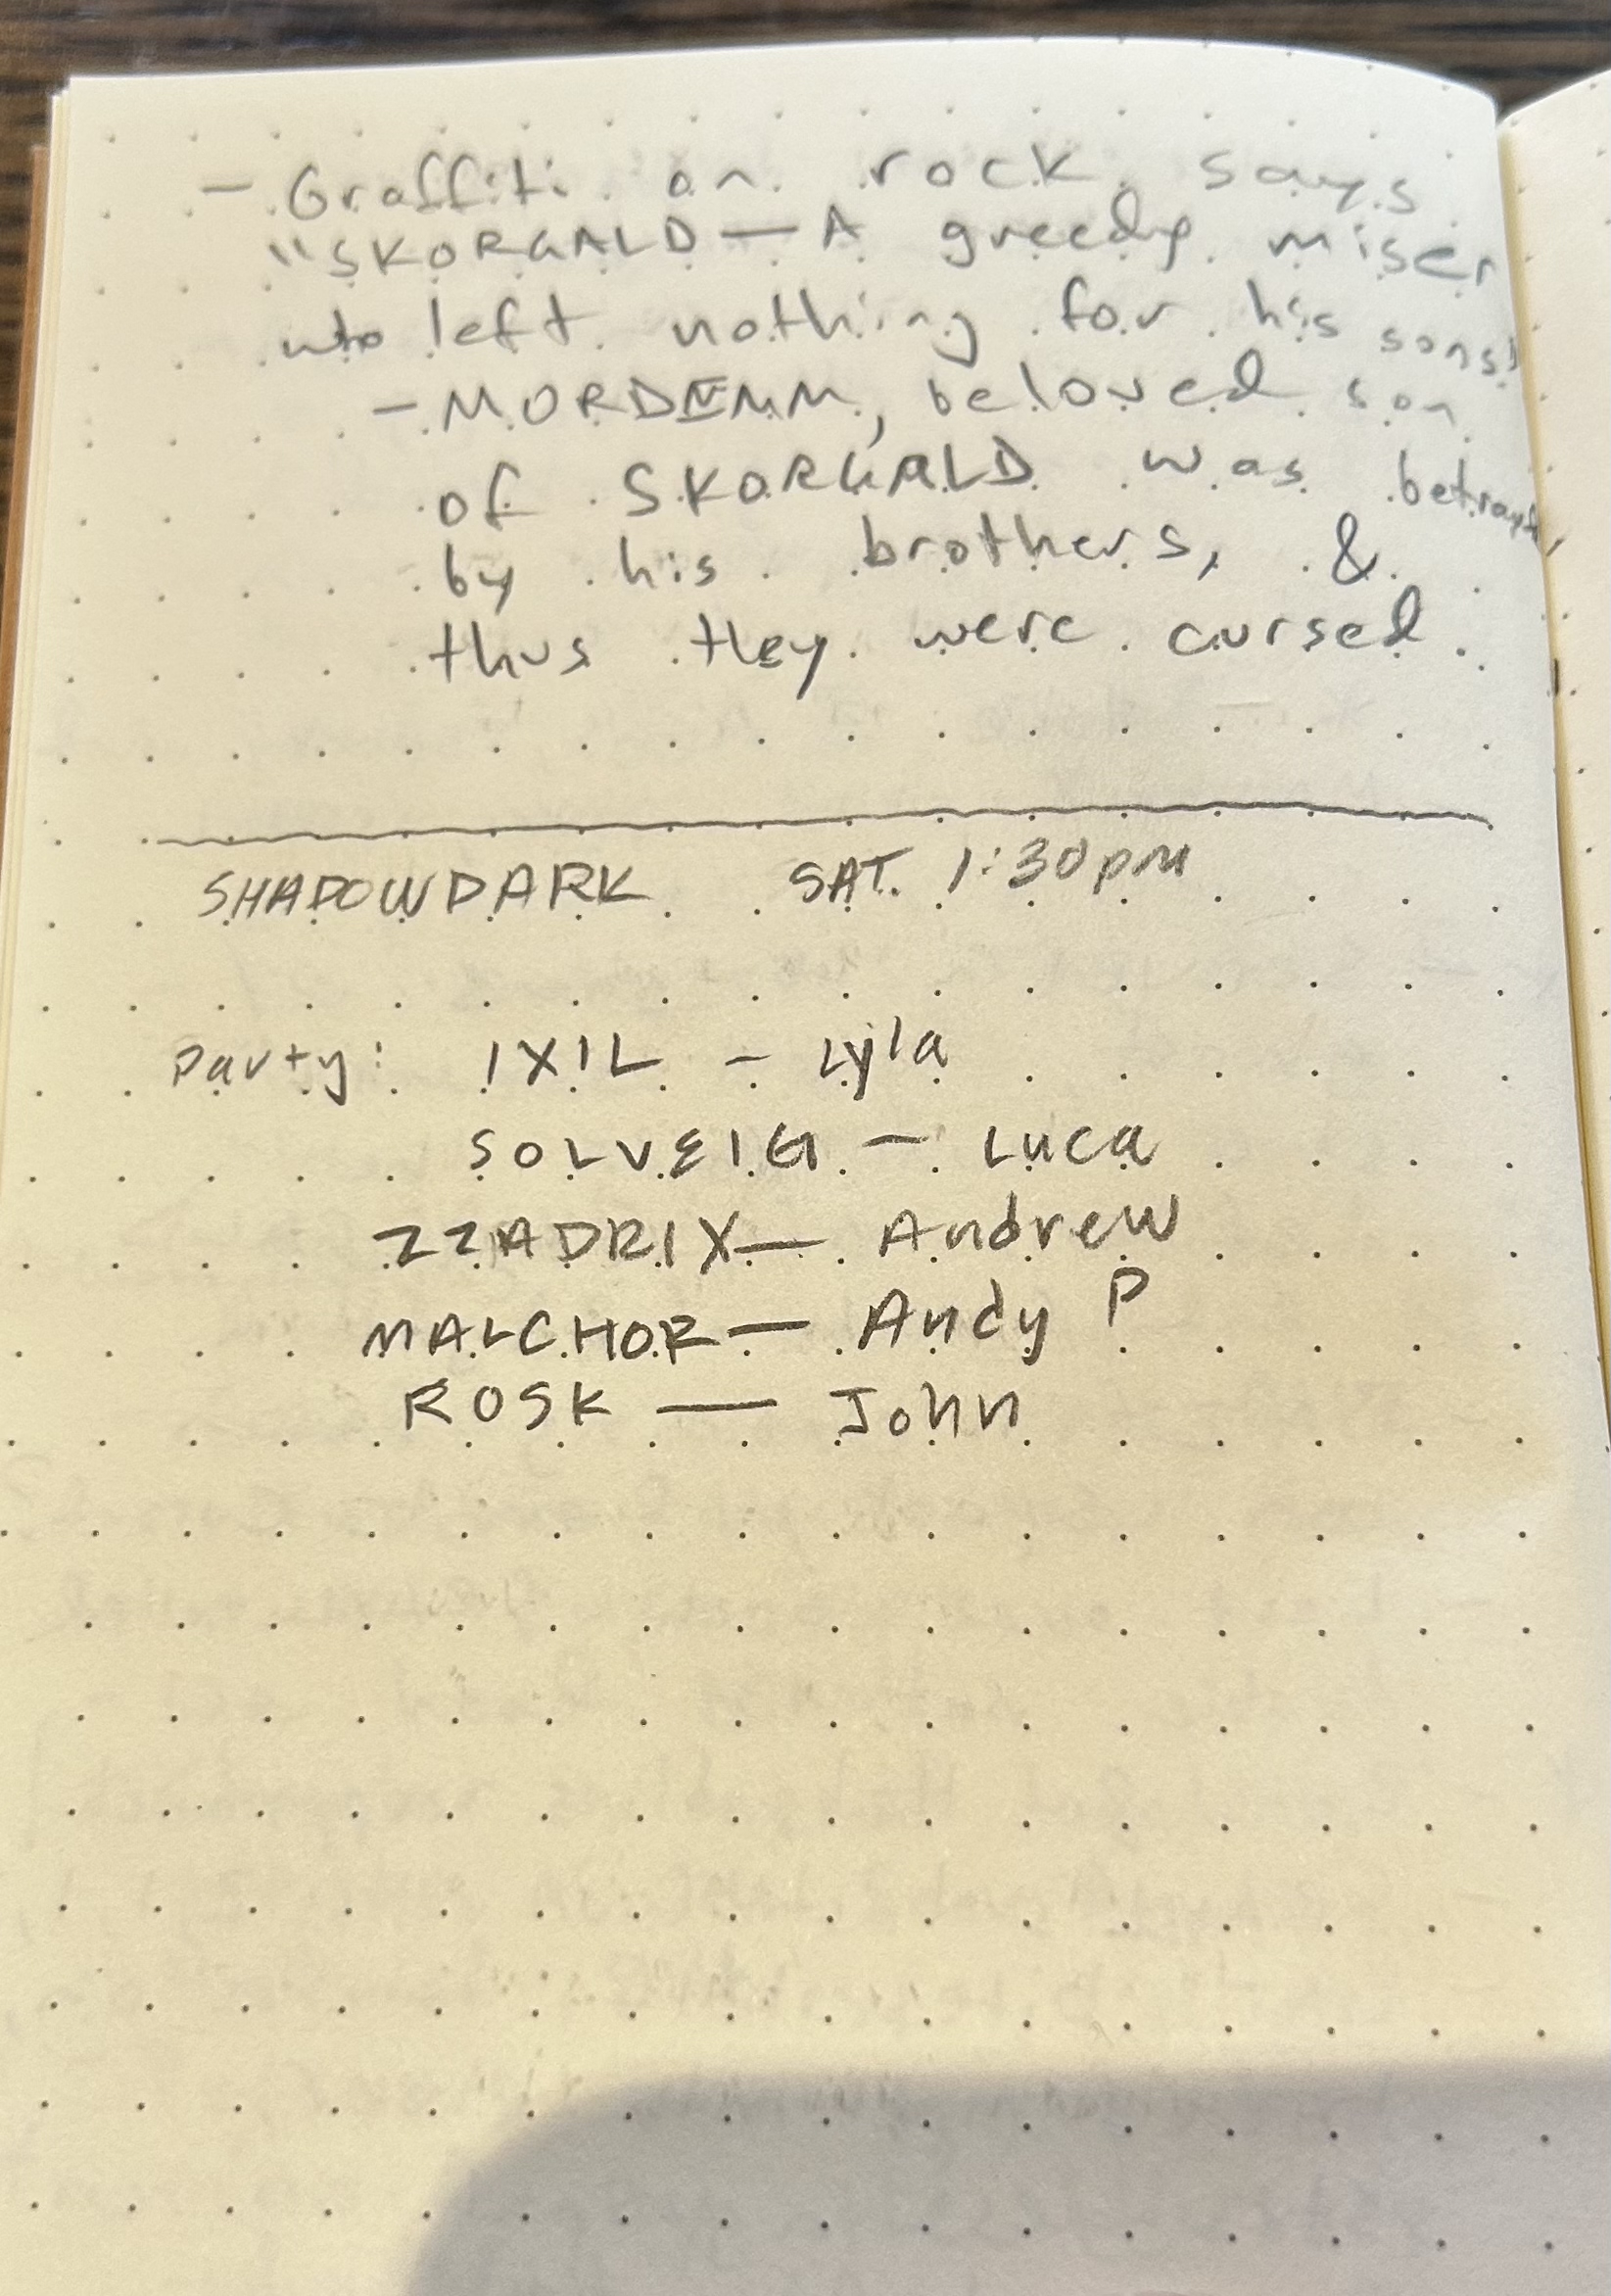 - Graffiti on rock says
"SKORGALD — A greedy miser
who left nothing for his sons"
- MORDENMM, beloved son
of SKORGALD was betrayed
by his brothers, &
thus they were cursed.
SHADOWDARK SAT. 1:30pm
Party: IXIL - Lyla
SOLVEIG - Luca
ZZADRIX — Andrew
MALCHOR — Andy P
ROSK — John